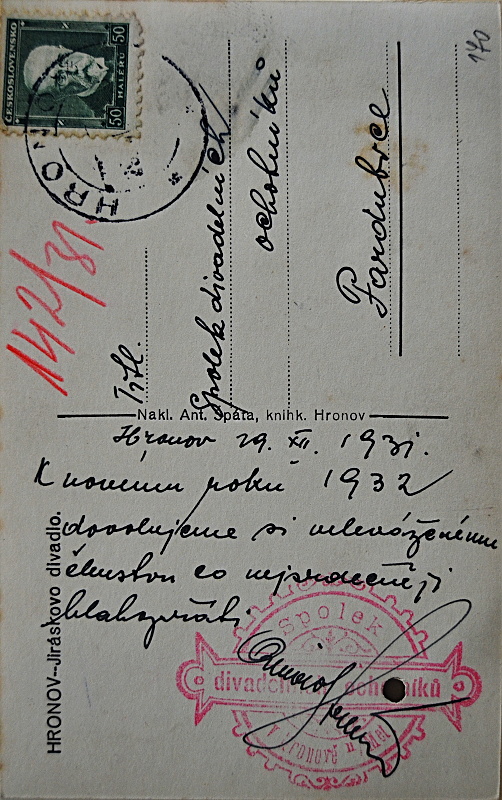 170
ČESKOSLOVENSKO
50 HALÉŘŮ 50
HRONO
142/31
Tit.
Spolek divadelních
ochotníků
Pardubice
Nakl. Ant. Špáta, knihk. Hronov
Hronov 29. XII. 1931.
K novému roku 1932
dovolujeme si veleváženému
členstvu co nejsrdečněji
blahopřáti
Spolek
divadelních ochotníků
v Hronově n
HRONOV--Jiráskovo divadlo.